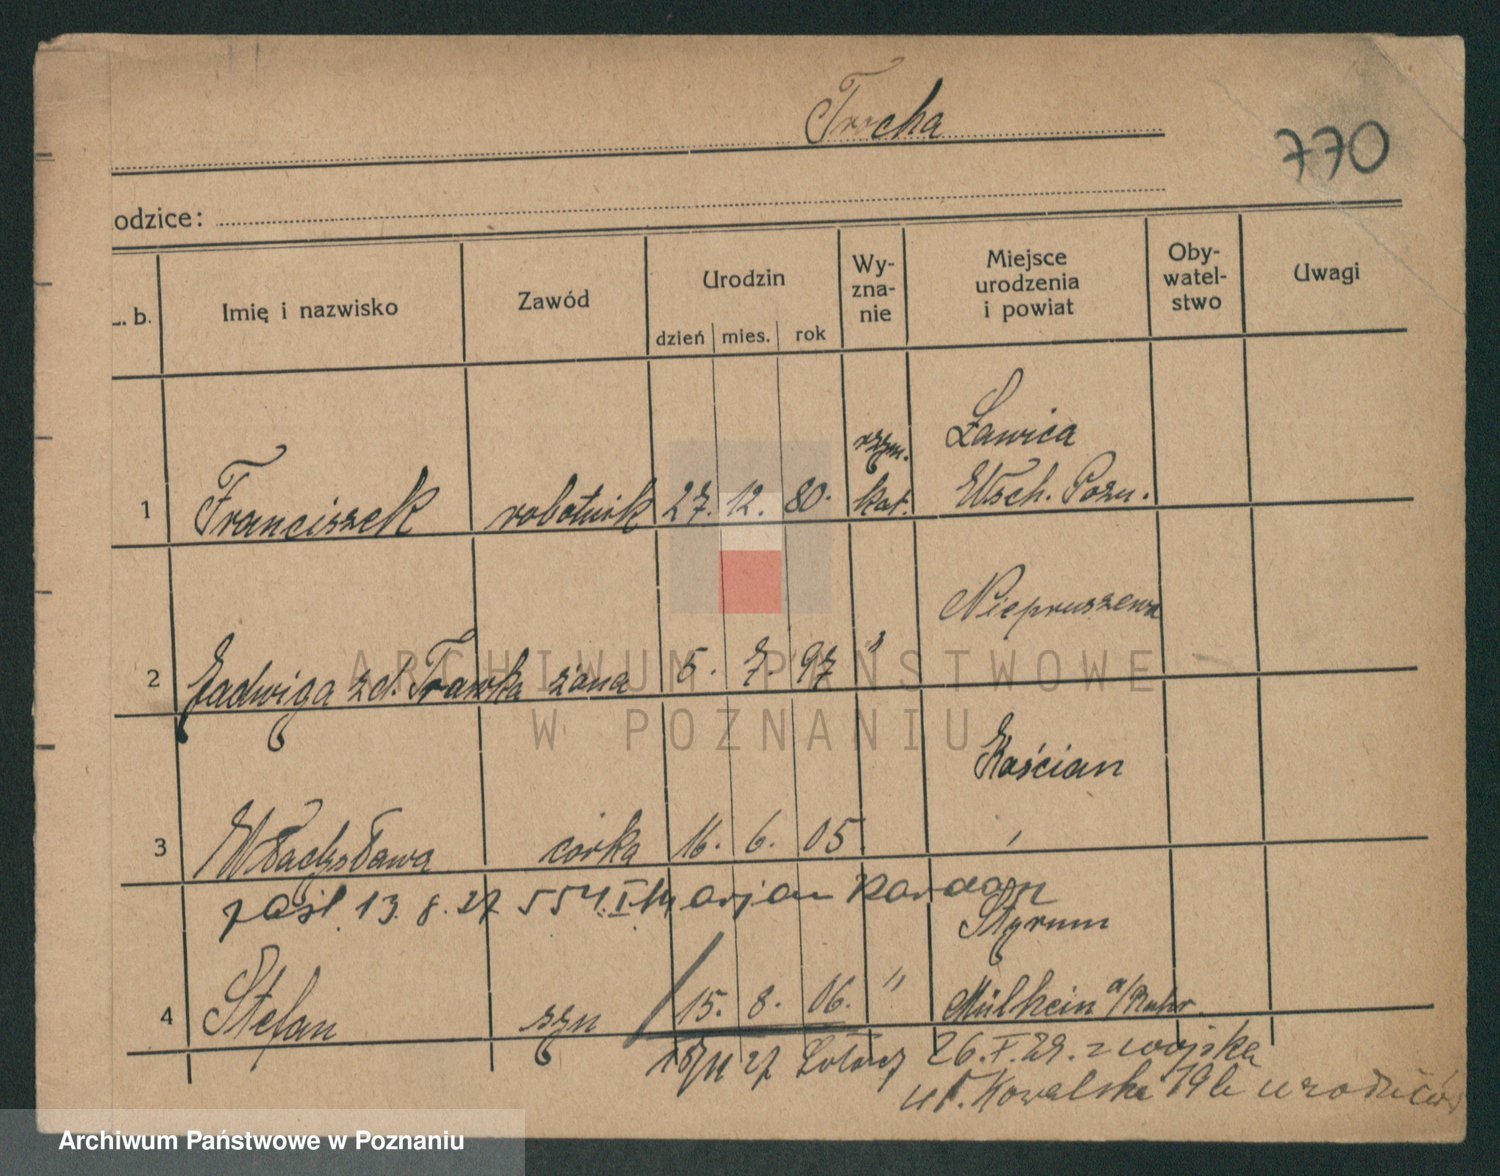 Trocha
770
odzice:
L. b.
Imię i nazwisko
Zawód
Urodzin
dzień mies. rok
Wy-
zna-
nie
Miejsce
urodzenia
i powiat
Oby-
watel-
stwo
Uwagi
Ławica
rzym.
1 Franciszek robotnik 27. 12. 80. kat. Wsch. Pozn.
Niepruszewo
2 Jadwiga zd. Trawka żona 5. 7. 97 "
Kościan
3 Władysława córka 16. 6. 05
zaśl. 13. 8. 27 554. I. Marjan
Styrum
4 Stefan syn 15. 8. 06. " Mülheim a/Ruhr.
27 26. X. 29. z wojska
ul. Kowalska 19b u rodziców
ARCHIWUM PAŃSTWOWE
W POZNANIU
Archiwum Państwowe w Poznaniu